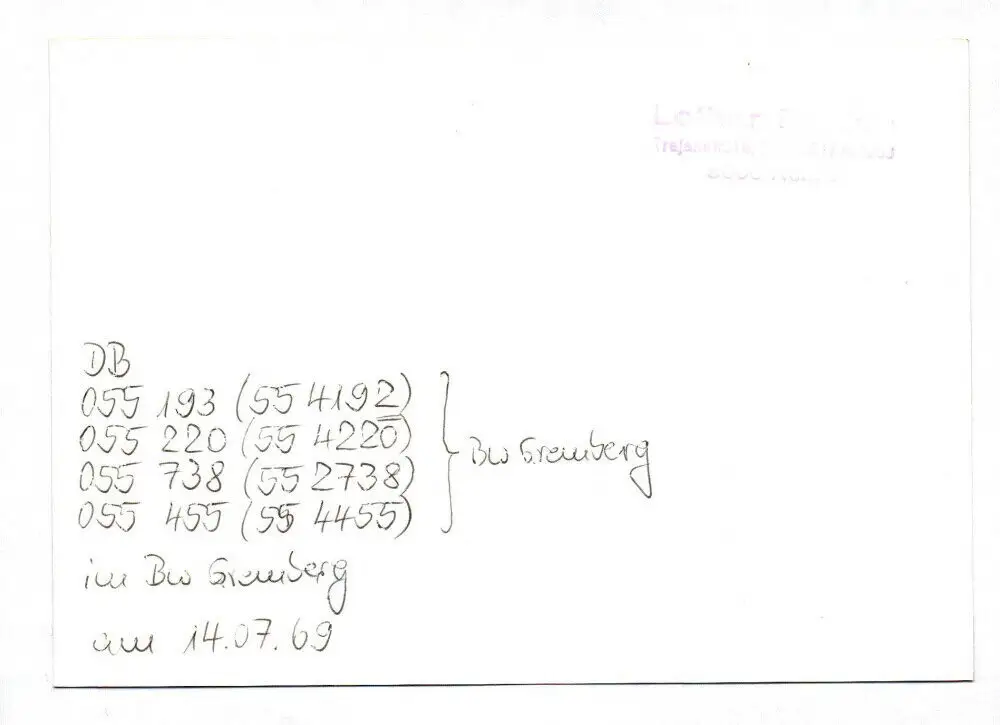 DB
055 193 (55 4192)
055 220 (55 4220)
055 738 (55 2738)
055 455 (55 4455)
Bw Gremberg
im Bw Gremberg
am 14.07.69